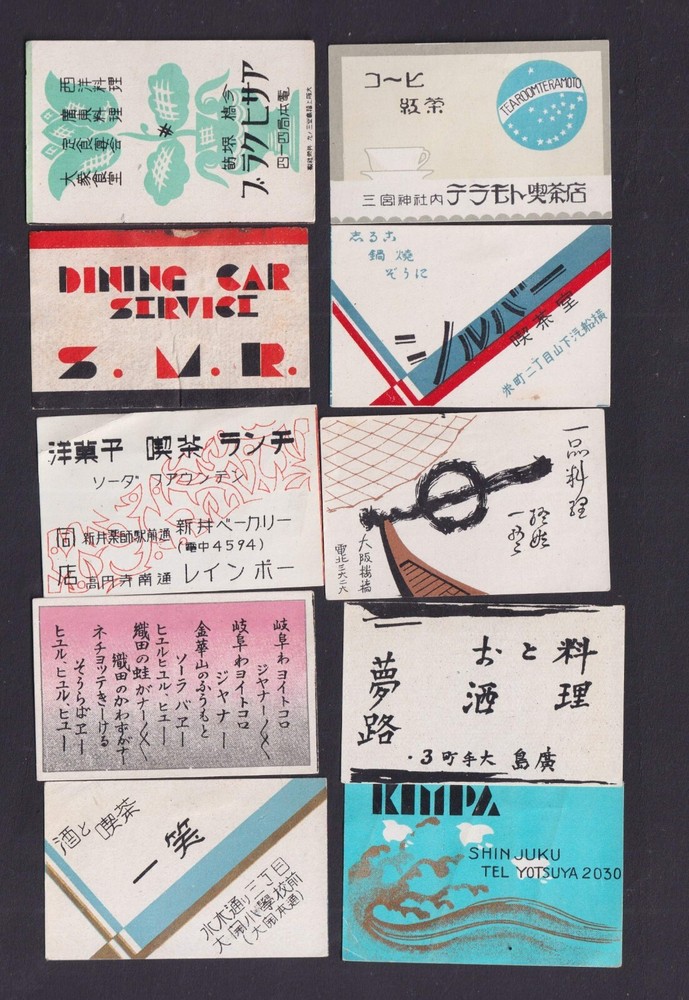 西洋料理
廣東料理
定食宴会
大衆食堂
今橋
堺筋
アサヒクラブ
電本局四一四
コーヒ
紅茶
TEAROOMTERAMOTO
三宮神社内 テラモト喫茶店
DINING CAR
SERVICE
S. M. R.
志る古
鍋焼
ぞうに
シルバー
喫茶室
栄町二丁目山下汽船横
洋菓子 喫茶 ランチ
ソーダ フアウンテン
新井薬師駅前通 新井ベーカリー
(電中4594)
同店 高円寺南通 レインボー
一品料理
大阪
電北三六二六
岐阜わヨイトコロ
ジヤナーノ〱
岐阜わヨイトコロ
ジヤナー
金華山のふうもと
ソーラ バヱー
ヒユルヒユル、ヒユー
織田の蛙がナーノ〱
織田のかわずがナー
ネチヨツテきーける
そうらばヱー
ヒユル、ヒユル、ヒユー
料理
と
お酒
夢路
廣島 大手町3.
酒と 喫茶
一笑
水木通り二丁目
大開小學校前
(大開本通)
KIMPA
SHINJUKU
TEL YOTSUYA 2030